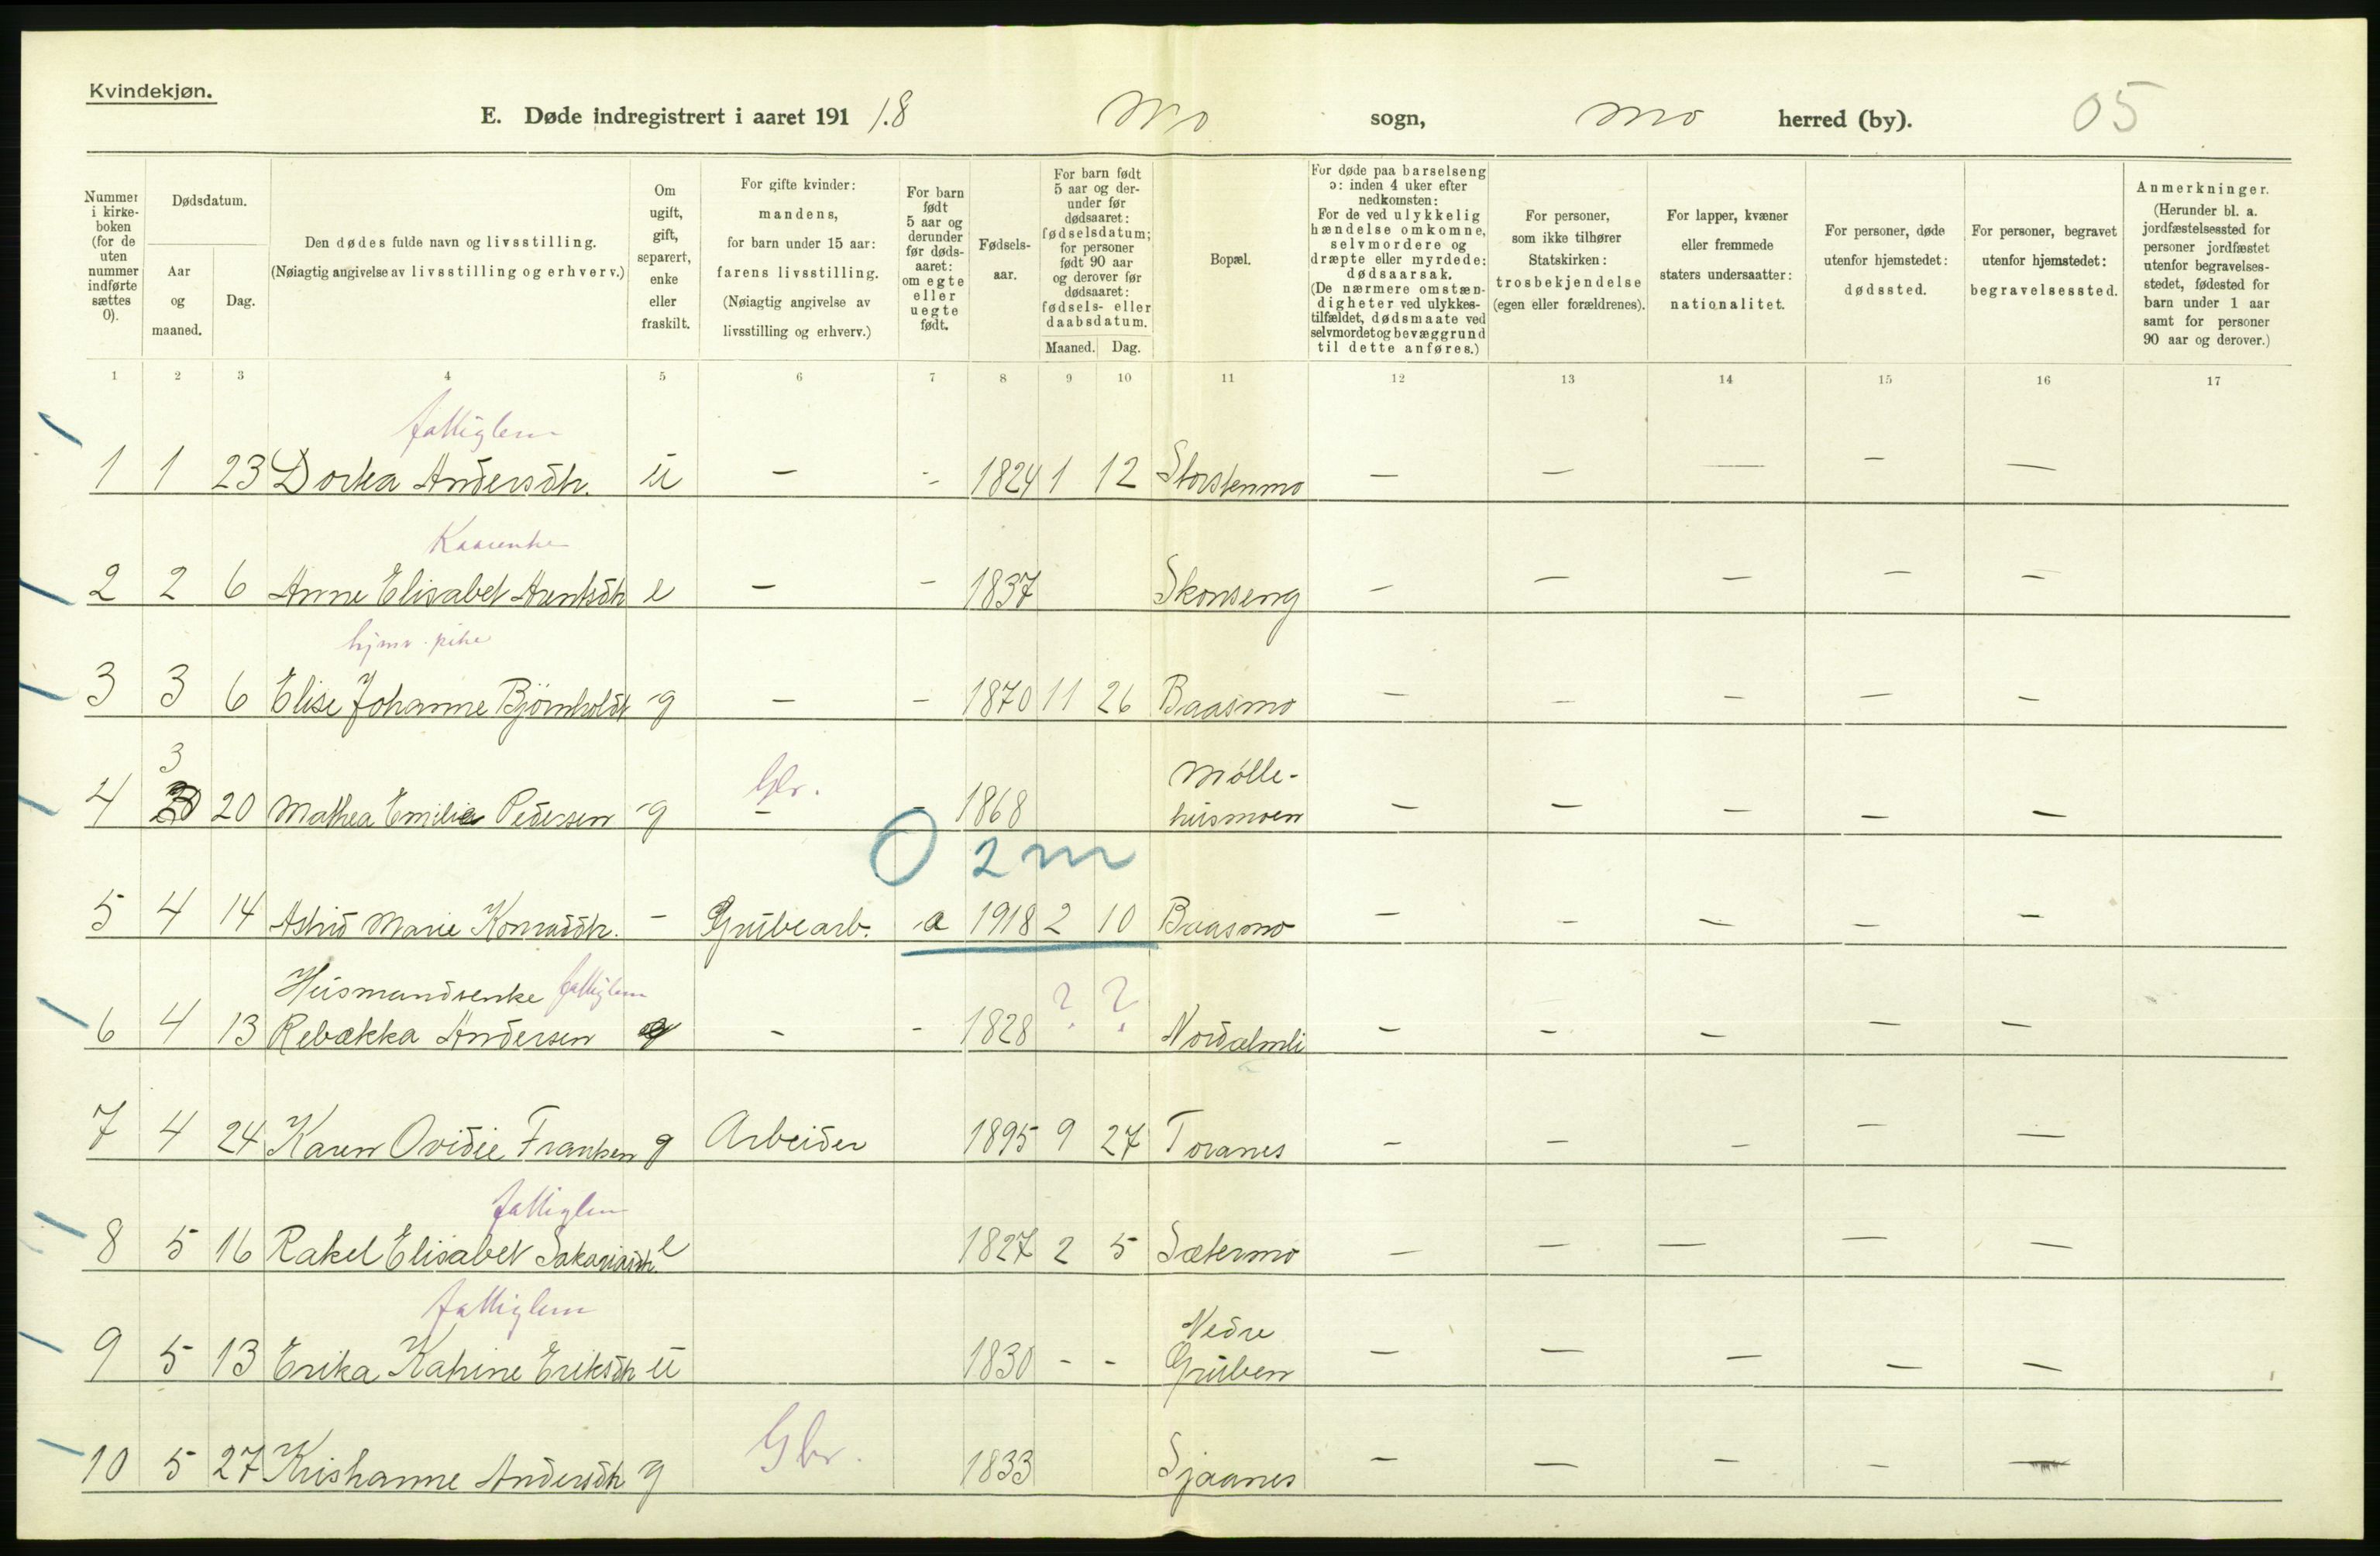 Kvindekjøn.
E. Døde indregistrert i aaret 1918 Mo sogn, Mo herred (by). 05
Nummer i kirke-boken (for de uten nummer indførte sættes 0).
Dødsdatum.
Aar og maaned.
Dag.
Den dødes fulde navn og livsstilling.
(Nøiagtig angivelse av livsstilling og erhverv.)
Om ugift, gift, separert, enke eller fraskilt.
For gifte kvinder: mandens, for barn under 15 aar: farens livsstilling. (Nøiagtig angivelse av livsstilling og erhverv.)
For barn født 5 aar og derunder før døds-aaret: om egte eller uegte født.
Fødsels-aar.
For barn født 5 aar og der-under før dødsaaret: fødselsdatum; for personer født 90 aar og derover før dødsaaret: fødsels- eller daabsdatum.
Maaned. Dag.
Bopæl.
For døde paa barselseng ɔ: inden 4 uker efter nedkomsten: For de ved ulykkelig hændelse omkomne, selvmordere og dræpte eller myrdede: dødsaarsak. (De nærmere omstæn-digheter ved ulykkes-tilfældet, dødsmaate ved selvmordet og bevæggrund til dette anføres.)
For personer, som ikke tilhører Statskirken: trosbekjendelse (egen eller forældrenes).
For lapper, kvæner eller fremmede staters undersaatter: nationalitet.
For personer, døde utenfor hjemstedet: dødssted.
For personer, begravet utenfor hjemstedet: begravelsessted.
Anmerkninger. (Herunder bl. a. jordfæstelsessted for personer jordfæstet utenfor begravelses-stedet, fødested for barn under 1 aar samt for personer 90 aar og derover.)
1 2 3 4 5 6 7 8 9 10 11 12 13 14 15 16 17
fattiglem
1 1 23 Dorka Andersdtr. u - - 1824 1 12 Storstenmo - - - - -
Kaarenke
2 2 6 Anne Elisabet Arentsdtr e - - 1837 Skonseng - - - - -
hjmv. pike
3 3 6 Elise Johanne Björnholdt g - - 1870 11 26 Baasmo - - - - -
3 Gbr. Mölle-
4 20 Mathea Emilie Pedersen g - - 1868 husmoen - - - - -
0 2 m
5 4 14 Astrid Marie Konraddtr. - Grubearb. a 1918 2 10 Baasmo - - - - -
Husmandsenke fattiglem ? ?
6 4 13 Rebækka Andersen - - 1828 Nordalmli - - - - -
7 4 24 Karen Ovidie Frantsen g Arbeider 1895 9 27 Toranes - - - - -
fattiglem
8 5 16 Rakel Elisabet Sakariasdtr. e 1827 2 5 Sætermo - - - - -
fattiglem Nedre
9 5 13 Erika Katrine Eriksdtr u 1830 - - Gruben - - - - -
10 5 27 Kristianne Andersdtr g Gbr. 1833 Sjaanes - - - - -